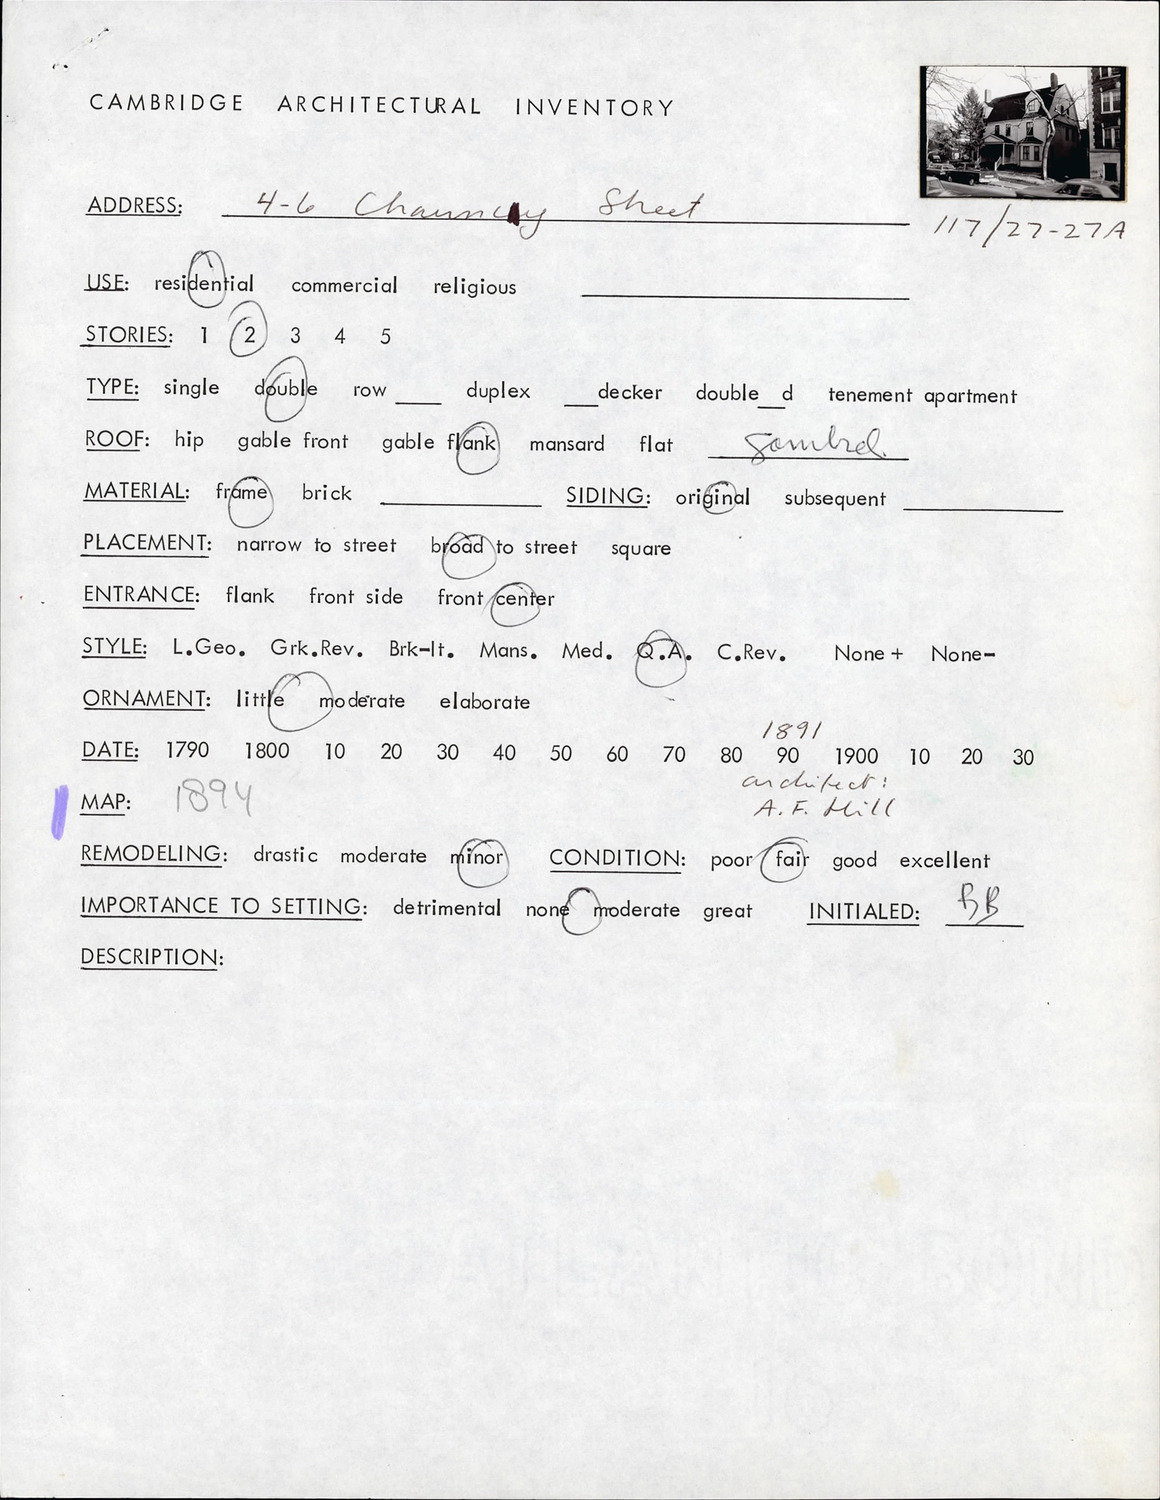 CAMBRIDGE ARCHITECTURAL INVENTORY
ADDRESS: 4-6 Chauncy Street
117/27-27A
USE: residential commercial religious
STORIES: 1 2 3 4 5
TYPE: single double row ___ duplex ___decker double__d tenement apartment
ROOF: hip gable front gable flank mansard flat gambrel
MATERIAL: frame brick ___ SIDING: original subsequent ___
PLACEMENT: narrow to street broad to street square
ENTRANCE: flank front side front center
STYLE: L.Geo. Grk.Rev. Brk-It. Mans. Med. Q.A. C.Rev. None+ None-
ORNAMENT: little moderate elaborate
1891
DATE: 1790 1800 10 20 30 40 50 60 70 80 90 1900 10 20 30
architect:
MAP: 1894
A.F. Hill
REMODELING: drastic moderate minor CONDITION: poor fair good excellent
IMPORTANCE TO SETTING: detrimental none moderate great INITIALED: BB
DESCRIPTION: